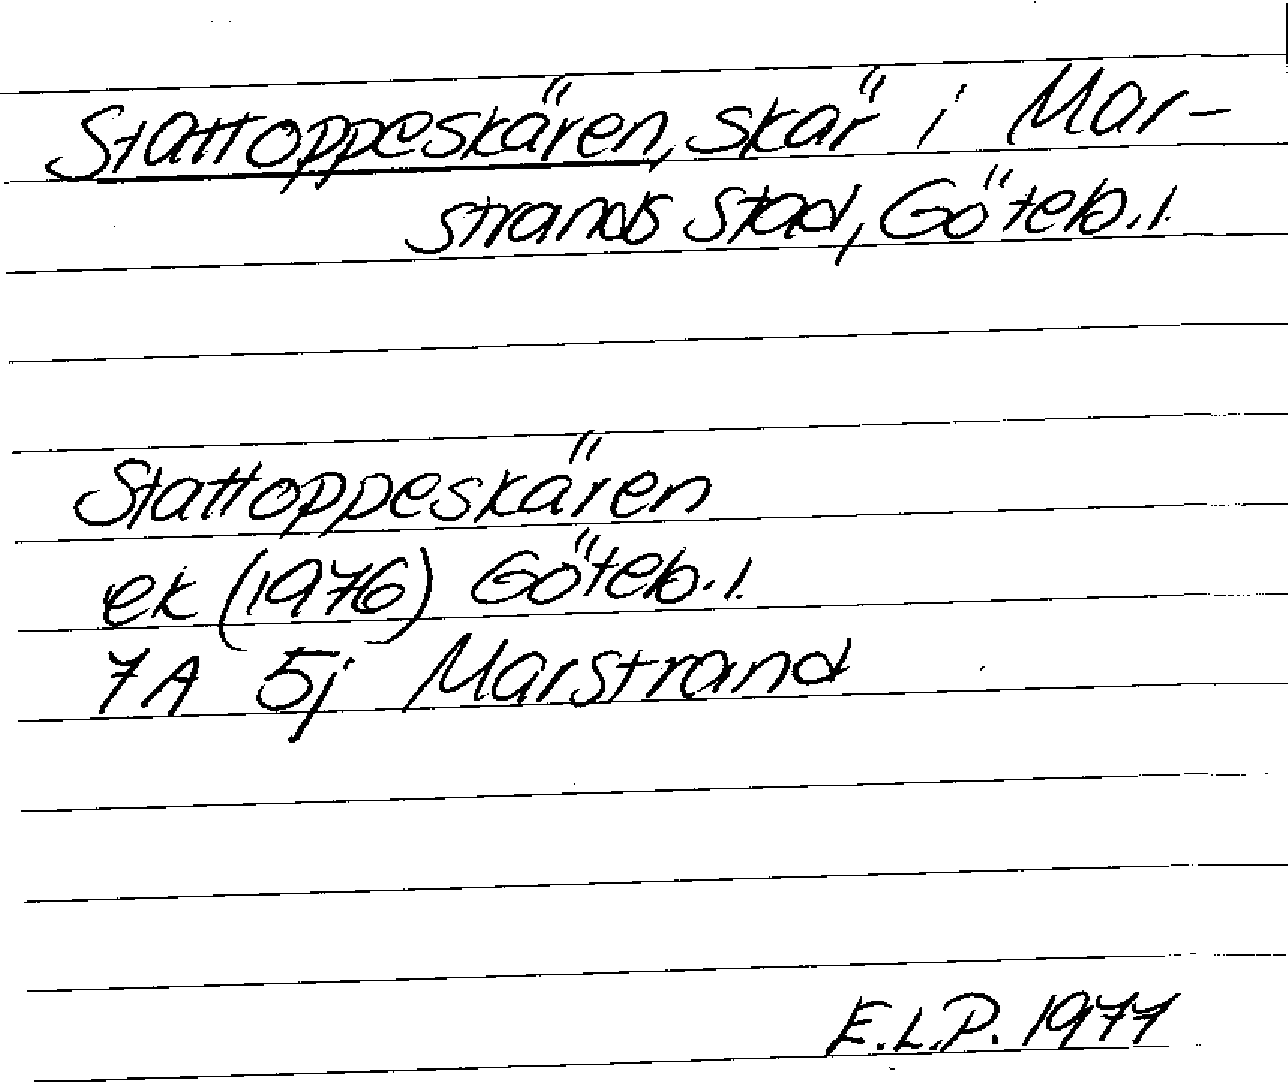 Stattoppeskären, skär i Mar-
strands stad, Göteb.l.
Stattoppeskären
ek (1976) Göteb.l.
7A 5j Marstrand
E.L.P. 1977